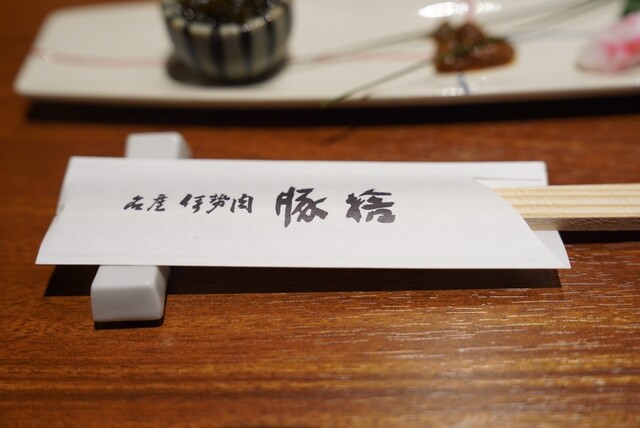 名産 伊勢肉 豚捨